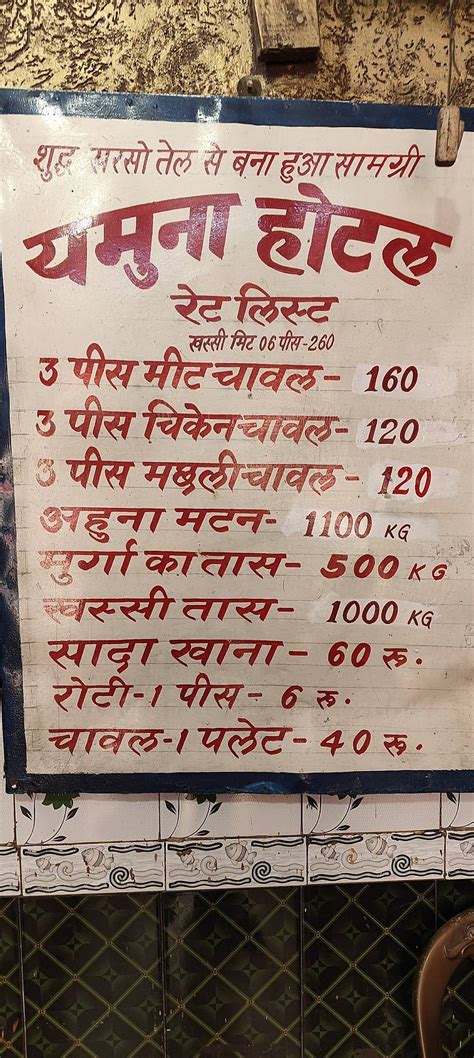 शुद्ध सरसो तेल से बना हुआ सामग्री
यमुना होटल
रेट लिस्ट
खस्सी मिट 06 पीस-260
3 पीस मीट चावल- 160
3 पीस चिकेन चावल- 120
3 पीस मछली चावल- 120
अहुना मटन- 1100 KG
मुर्गा का तास- 500 KG
खस्सी तास- 1000 KG
सादा खाना- 60 रू.
रोटी-1 पीस- 6 रू.
चावल-1 पलेट- 40 रू.